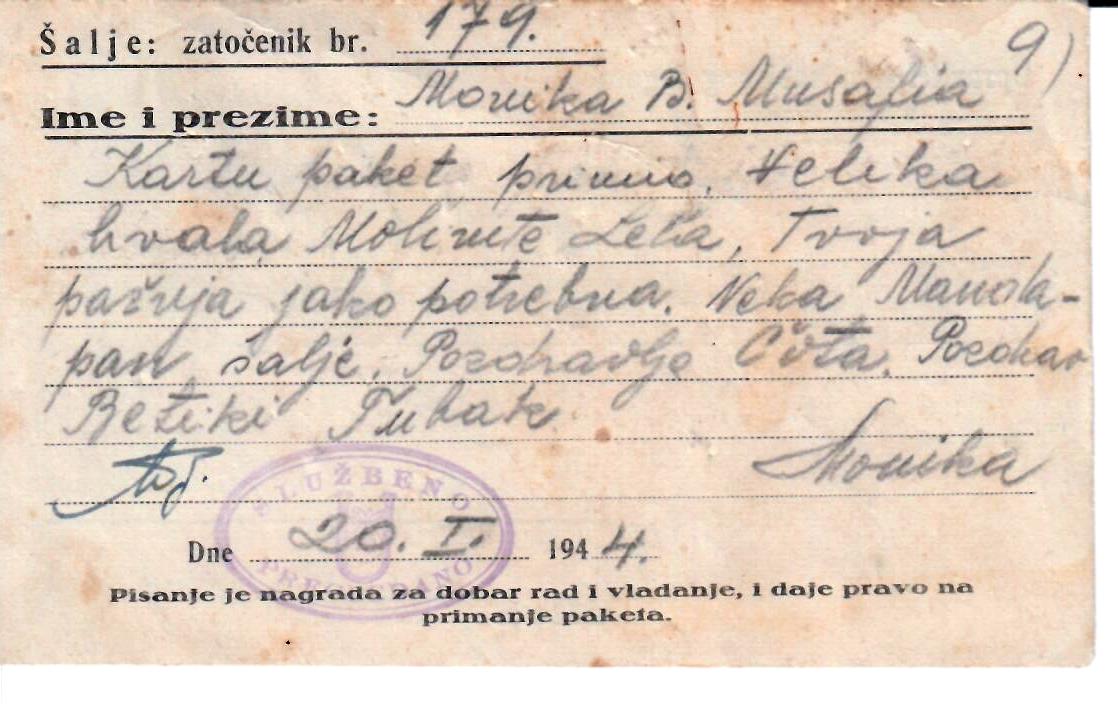 Šalje: zatočenik br. 179.
9)
Ime i prezime: Monika B. Musafia
Kartu paket primio. Velika
hvala Molinite Leta, Tvoja
pažnja jako potrebna. Neka Manda-
pan šalje. Pozdravlje Čiča. Pozdrav
Betiki Tubak.
Monika
SLUŽBENO
U
PREGLEDANO
Dne 20. I. 1944.
Pisanje je nagrada za dobar rad i vladanje, i daje pravo na
primanje paketa.